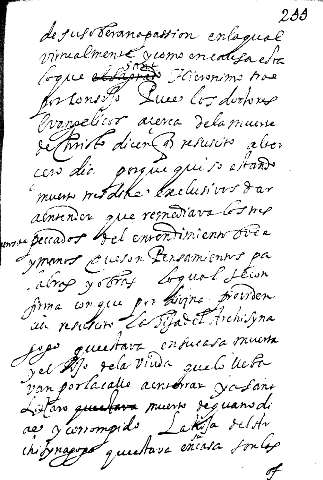 233
de su soberana passion en la qual
virtualmente y como en causa esta
lo que sant Hieronimo trae
por consejo Que los doctores
Evangelicos açerca de la muerte
de Christo dicen q̃ resuscito al ter
cero dia porque quiso estando
muerto tres dias exclusivos dar
a entender que remediava los tres
peccados del entendimiento boca
y manos que son Pensamientos pa
labras y obras lo qual se con
firma con que por divina Providen
cia resuscito la hija del Archisyna
gogo que estava en su casa muerta
y el hijo de la viuda que lo lleba
van por la calle a enterrar y a sant
Lazaro muerto de quatro di
as y corrompido La hija del Ar
chisynagogo que estava en casa son los